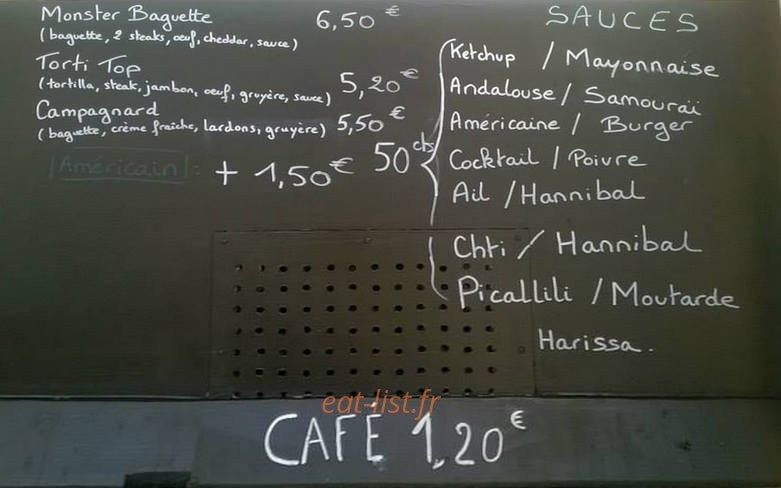 Monster Baguette 6,50 €
(baguette, 2 steaks, oeuf, cheddar, sauce)
Torti Top
(tortilla, steak, jambon, oeuf, gruyère, sauce) 5,20 €
Campagnard
(baguette, crème fraîche, lardons, gruyère) 5,50 €
Américain : + 1,50 €
SAUCES
50 cts
Ketchup / Mayonnaise
Andalouse / Samouraï
Américaine / Burger
Cocktail / Poivre
Ail / Hannibal
Chti / Hannibal
Picallili / Moutarde
Harissa.
eat-list.fr
CAFÉ 1,20 €